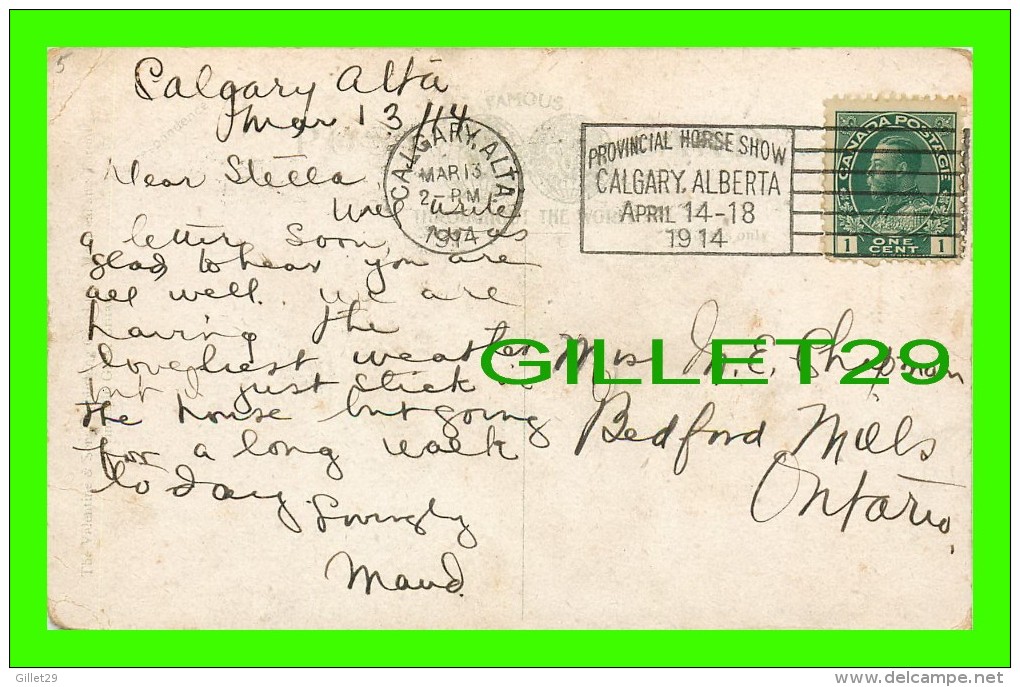 5
Calgary Alta
Mar 13/14
Dear Stella
Will write
a letter soon, was
glad to hear you are
all well. We are
having the
loveliest weather
but I just stick in
the house but going
for a long walk
to day
Lovingly
Maud.
FAMOUS
THROUGHOUT THE WORLD
only
The Valentine &
CALGARY, ALTA.
MAR 13
2 - PM
1914
PROVINCIAL HORSE SHOW
CALGARY, ALBERTA
APRIL 14-18
1914
CANADA POSTAGE
1 ONE CENT 1
Mrs M.E. Chapman
Bedford Mills
Ontario.
GILLET29
Gillet29
www.delcampe.net